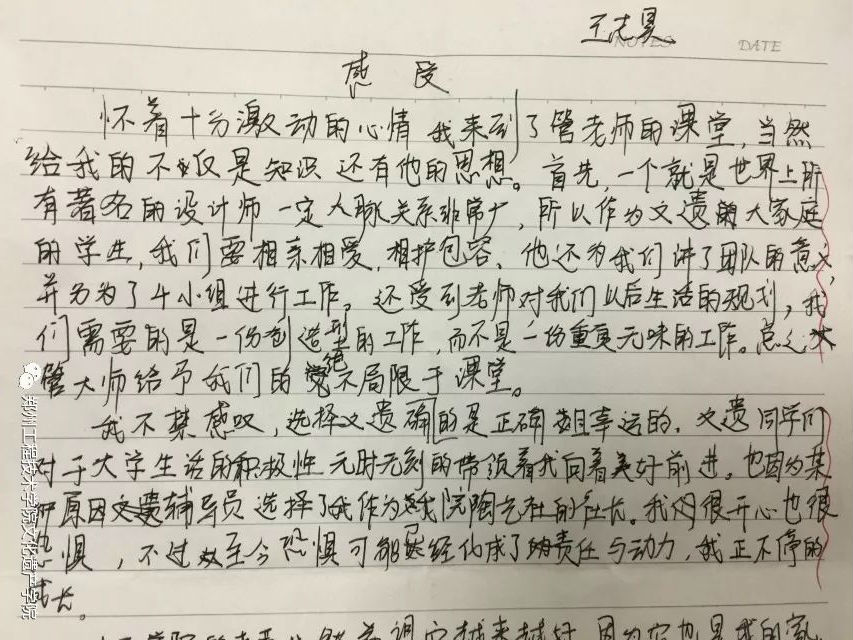 王志昊
NOTES DATE
感 受
怀着十分激动的心情 我来到了管老师的课堂，当然
给我的不仅是知识 还有他的思想。首先，一个就是世界上所
有著名的设计师 一定人脉关系非常广，所以作为文遗大家庭
的学生，我们要相亲相爱，相护包容、他还为我们讲了团队的意义，
并分为了4小组进行工作。还受到老师对我们以后生活的规划，我
们需要的是一份创造型的工作，而不是一份重复无味的工作。总之
管大师给予我们的绝不局限于课堂。
我不禁感叹，选择文遗确的是正确且幸运的．文遗同学们
对于大学生活的积极性 无时无刻的带领着我向着美好前进。也因为某
种原因文遗辅导员选择了我作为我院陶艺社的社长。我很开心也很
恐惧，不过至今恐惧可能已经化成了责任与动力，我正不停的
成长。
郑州工程技术学院文化遗产学院